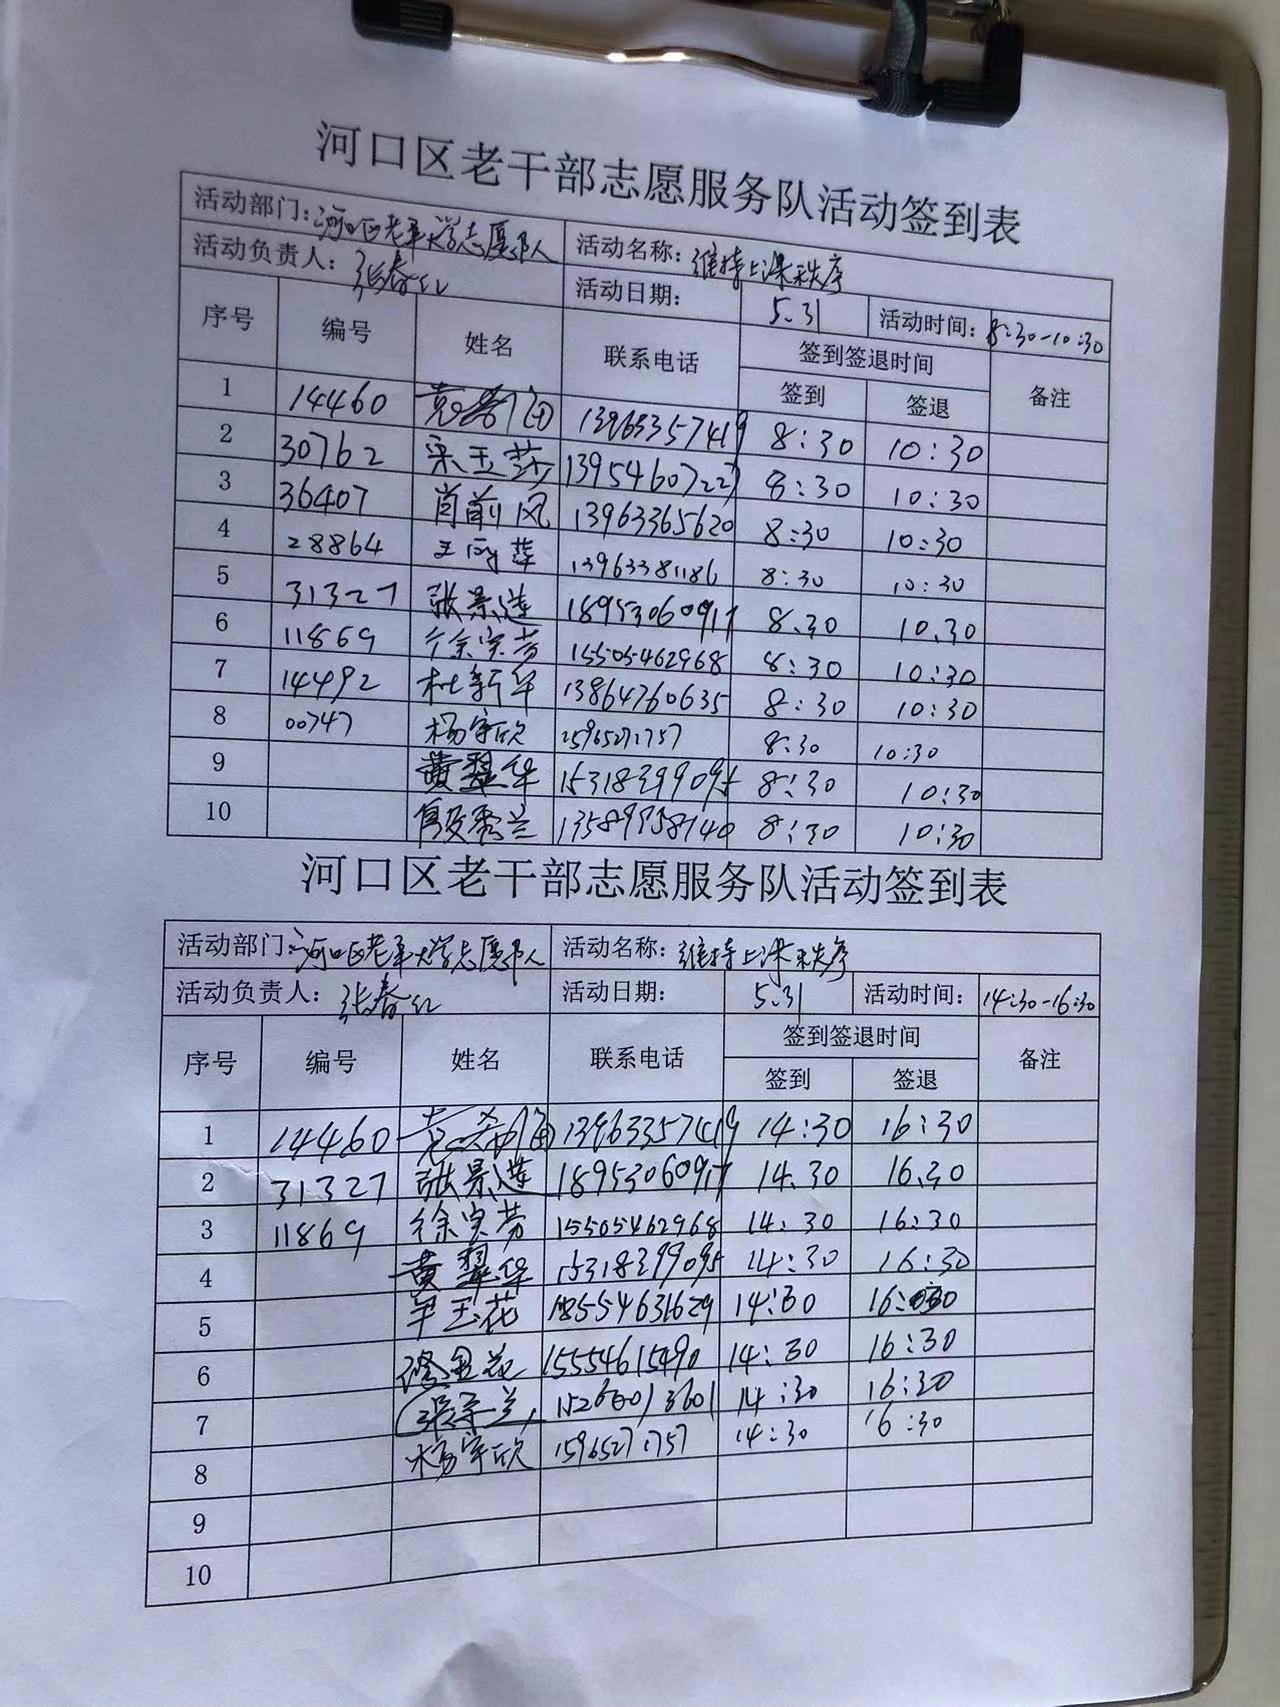 河口区老干部志愿服务队活动签到表
活动部门:河口区老年大学志愿队 活动名称:维持上课秩序
活动负责人:张春红 活动日期: 5.31 活动时间: 8:30-10:30
序号 编号 姓名 联系电话 签到签退时间 备注
签到 签退
1 14460 13963357419 8:30 10:30
2 30762 宋玉莎 13954607227 8:30 10:30
3 36407 肖前风 13963365620 8:30 10:30
4 28864 王 莲 13963381186 8:30 10:30
5 31327 张景莲 18953060917 8.30 10.30
6 11869 徐实芳 15505462968 8:30 10:30
7 14492 杜新华 13864760635 8:30 10:30
8 00747 杨宇欣 8:30 10:30
9 黄翠华 15318299095 8:30 10:30
10 殷秀兰 13589958740 8:30 10:30
河口区老干部志愿服务队活动签到表
活动部门:河口区老年大学志愿队 活动名称:维持上课秩序
活动负责人:张春红 活动日期: 5.31 活动时间: 14:30-16:30
序号 编号 姓名 联系电话 签到签退时间 备注
签到 签退
1 14460 13963357419 14:30 16:30
2 31327 张景莲 18953060917 14.30 16.30
3 11869 徐实芳 15505462968 14:30 16:30
4 黄翠华 15318299095 14:30 16:30
5 牟玉花 18554631629 14:30 16:30
6 金花 15554615490 14:30 16:30
7 兰 14:30 16:30
8 杨宇欣 15965271757 14:30 16:30
9
10